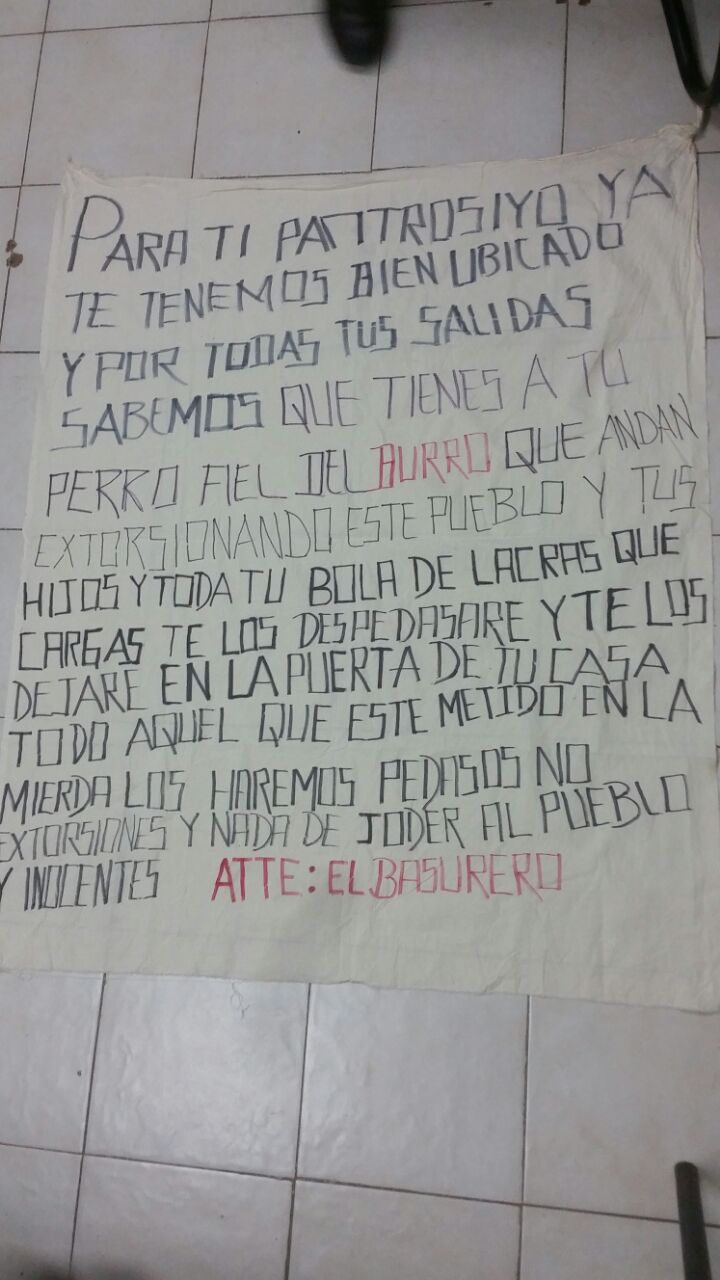 PARA TI PATITROSIYO YA
TE TENEMOS BIEN UBICADO
Y POR TODAS TUS SALIDAS
SABEMOS QUE TIENES A TU
PERRO FIEL DEL BURRO QUE ANDAN
EXTORSIONANDO ESTE PUEBLO Y TUS
HIJOS Y TODA TU BOLA DE LACRAS QUE
CARGAS TE LOS DESPEDASARE Y TE LOS
DEJARE EN LA PUERTA DE TU CASA
TODO AQUEL QUE ESTE METIDO EN LA
MIERDA LOS HAREMOS PEDASOS NO
EXTORSIONES Y NADA DE JODER AL PUEBLO
Y INOCENTES ATTE: EL BASURERO